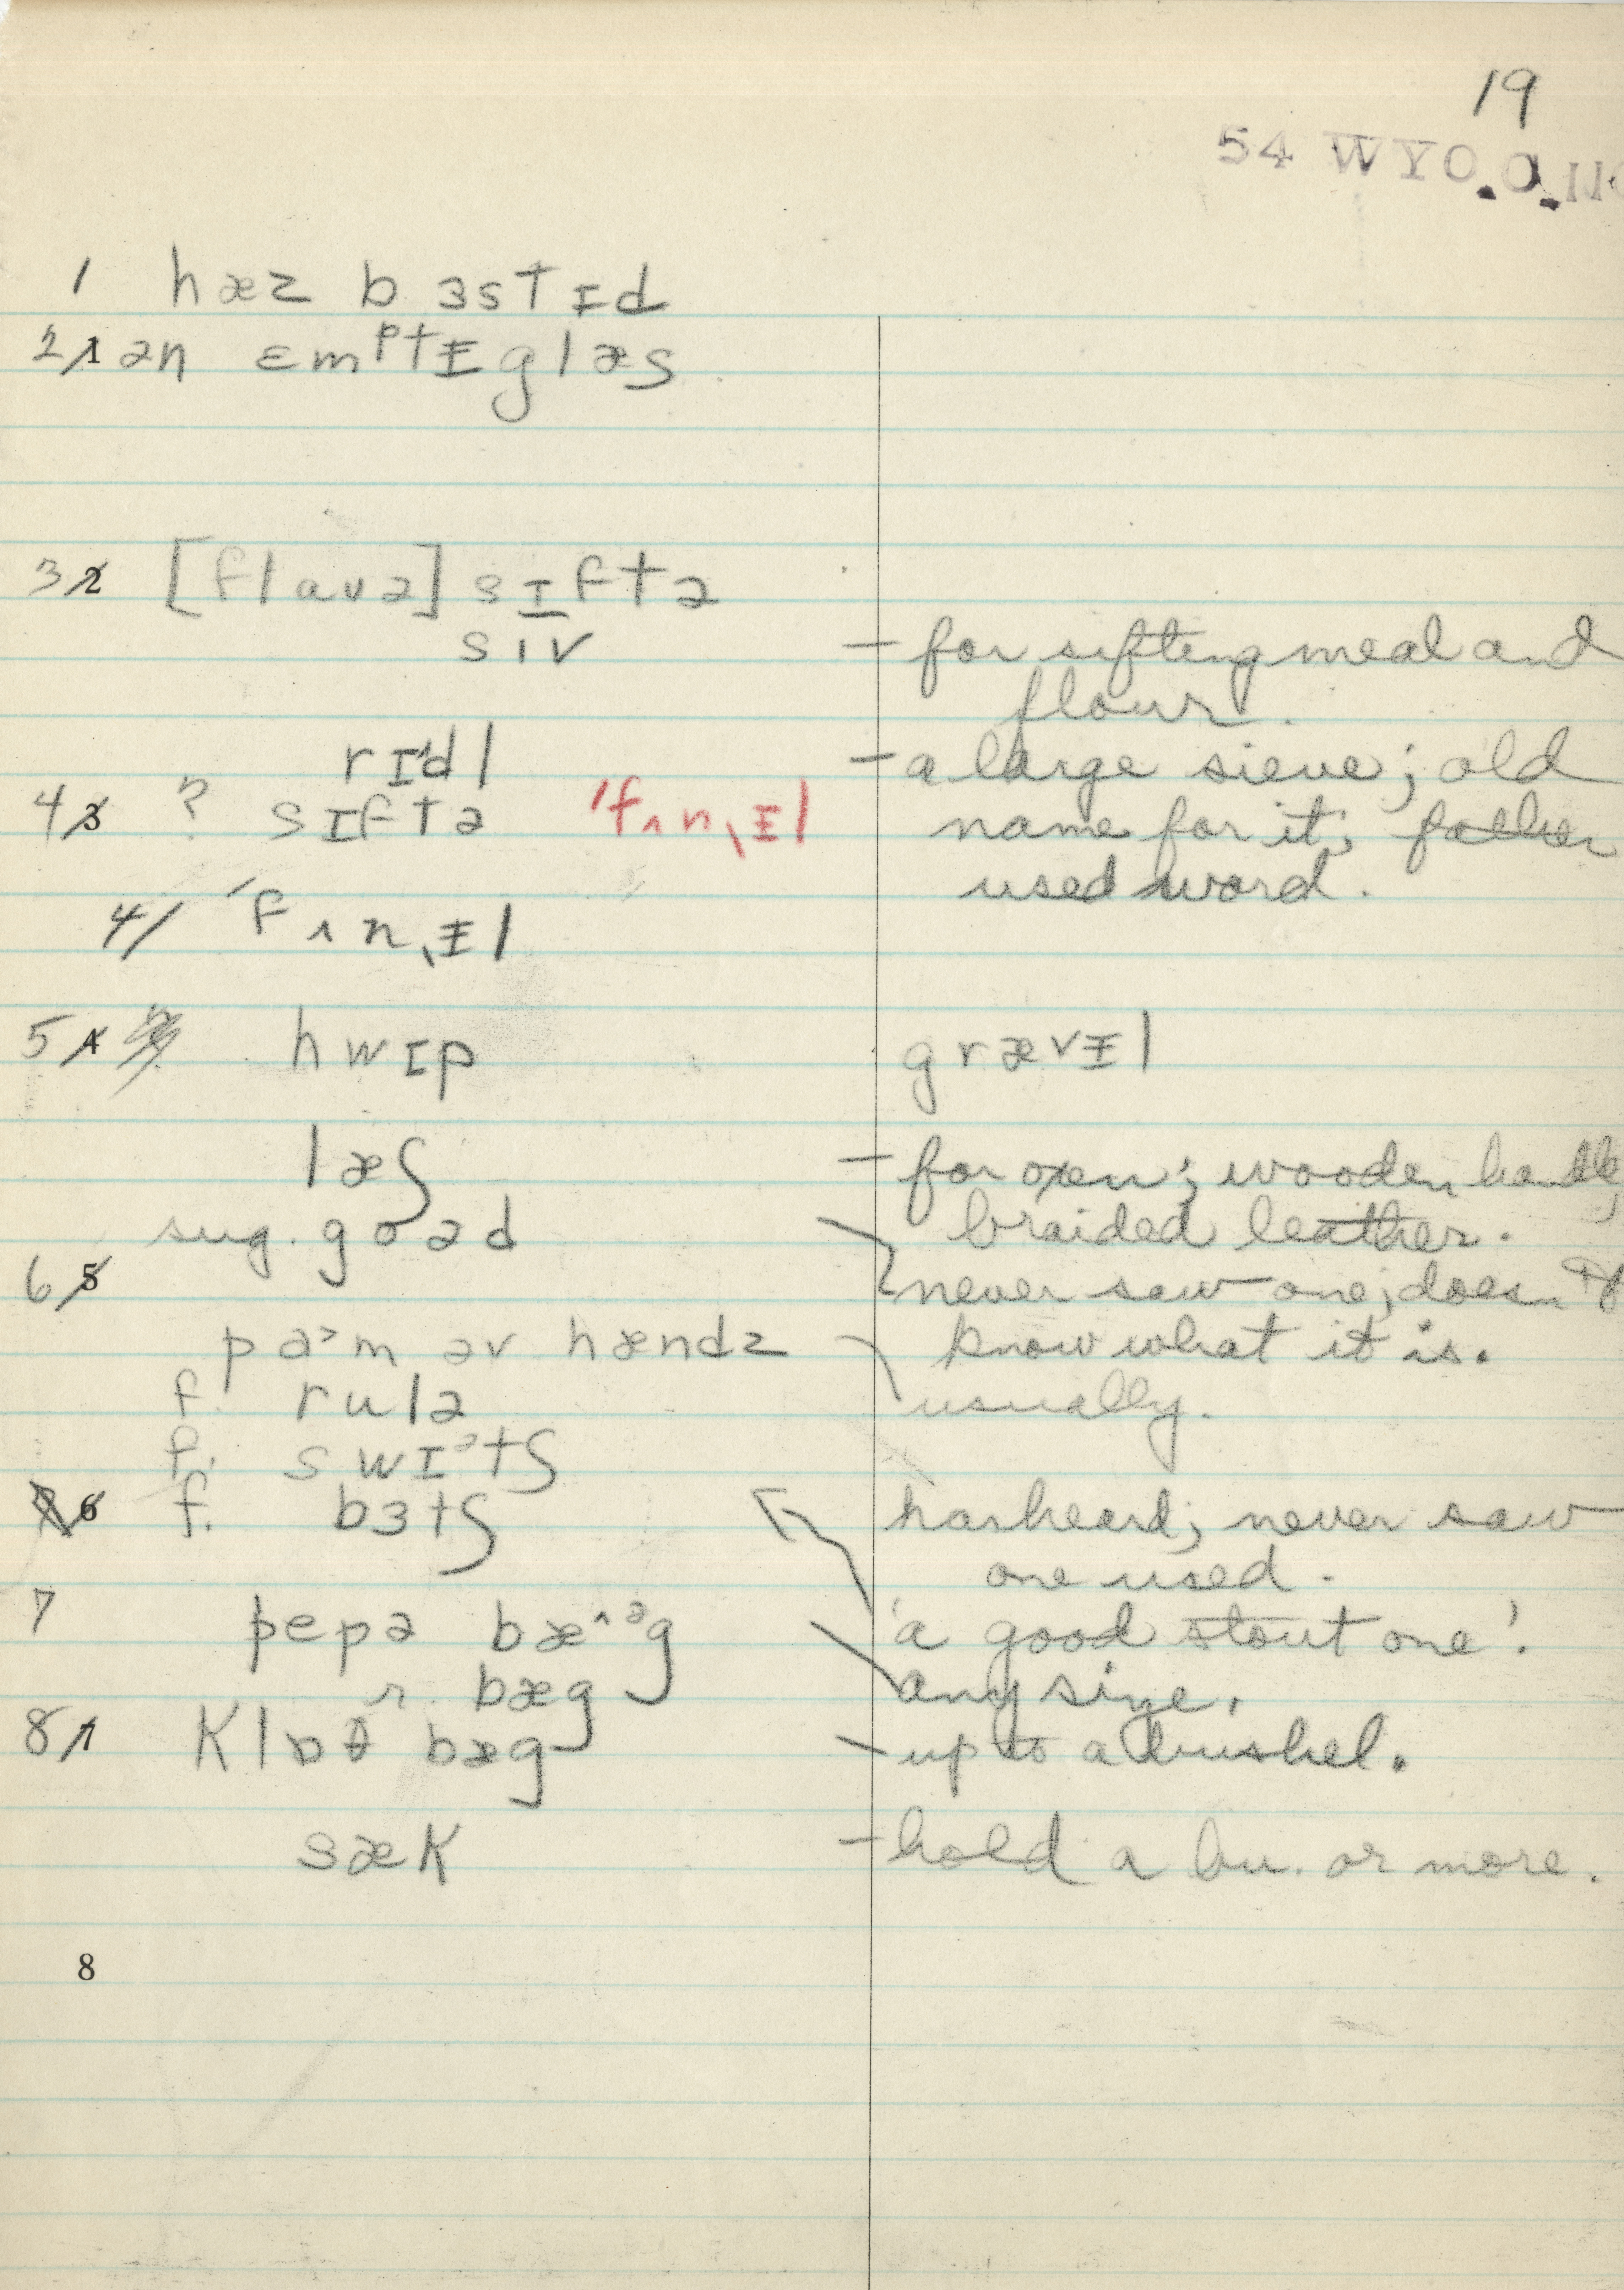 19
54 WYO.O.11
1 hæz bɜstɪd
2 1 ən ɛmᵖtɪ̵ glæs
3 2 [flaʊə] sɪftə
sɪv – for sifting meal and
flour.
rɪdl – a large sieve; old
4 3 ? sɪftə ˈfʌnˌɪ̵l name for it; father
used word.
4/ ˈfʌnˌɪ̵l
5 4 hwɪp grævɪ̵l
læʃ – for oxen; wooden handle,
sug. goəd braided leather.
6 5 never saw one; doesn't
paᵊm əv hændz know what it is.
f. rulə usually.
f. swɪᵊtʃ
6 f. bɜtʃ has heard; never saw
one used.
7 pepə bæ^ᵊg 'a good stout one'.
r. bæg any size.
8 1 klɒθ bæg – up to a bushel.
sæk – hold a bu. or more.
8